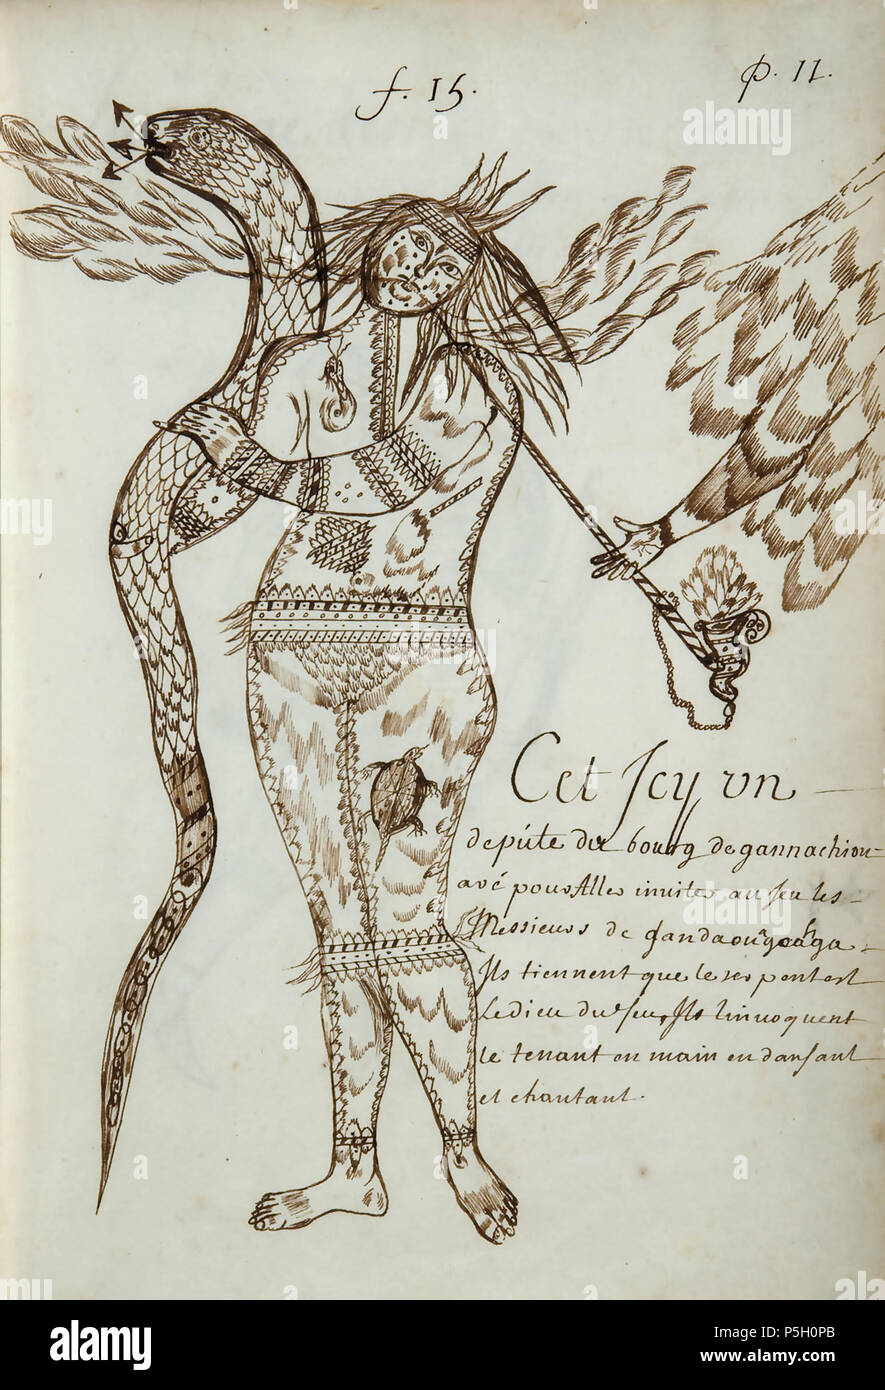 f. 15.
p. 11.
Cet Icy un
depúte du bourg de gannachiou-
avé pour aller inviter au Jeu les
Messieurs de gandaouägoahga.
Ils tiennent que le serpent est
Le dieu du feu, Ils linvoquent
le tenant en main en dansant
et chantant.
a
alamy
alamy
Image ID: P5H0PB
www.alamy.com